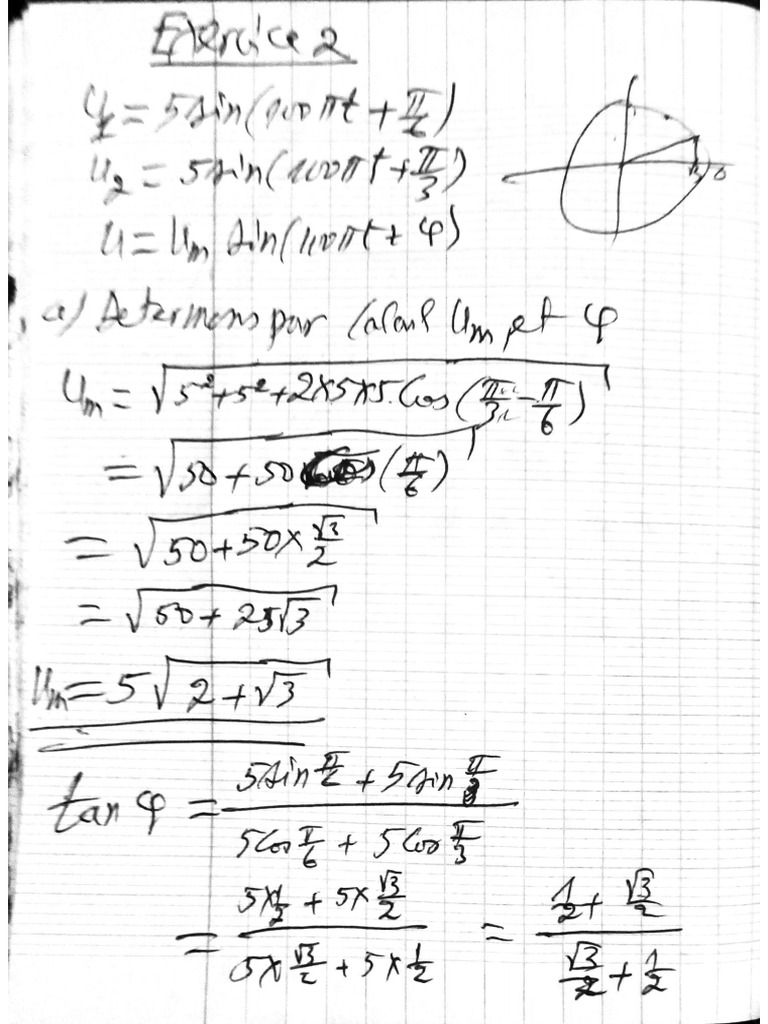 Exercice 2
U1 = 5 sin(100πt + π/6)
U2 = 5 sin(100πt + π/3)
U = Um sin(100πt + φ)
a) Determons par Calcul Um et φ
Um = √(5² + 5² + 2×5×5.Cos(π/3 - π/6))
= √(50 + 50 Cos(π/6))
= √(50 + 50×√3/2)
= √(50 + 25√3)
Um = 5√(2 + √3)
tan φ = (5 sin π/6 + 5 sin π/3)/(5 Cos π/6 + 5 Cos π/3)
= (5×1/2 + 5×√3/2)/(5×√3/2 + 5×1/2) = (1/2 + √3/2)/(√3/2 + 1/2)